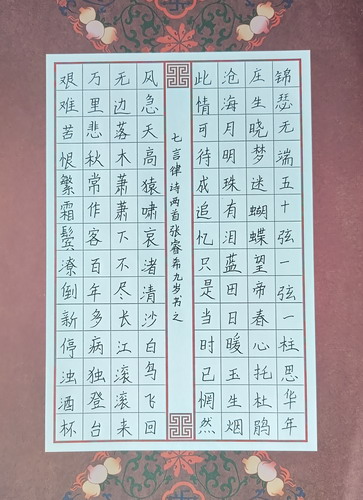 锦瑟无端五十弦一弦一柱思华年
庄生晓梦迷蝴蝶望帝春心托杜鹃
沧海月明珠有泪蓝田日暖玉生烟
此情可待成追忆只是当时已惘然
七言律诗两首张睿希九岁书之
风急天高猿啸哀渚清沙白鸟飞回
无边落木萧萧下不尽长江滚滚来
万里悲秋常作客百年多病独登台
艰难苦恨繁霜鬓潦倒新停浊酒杯